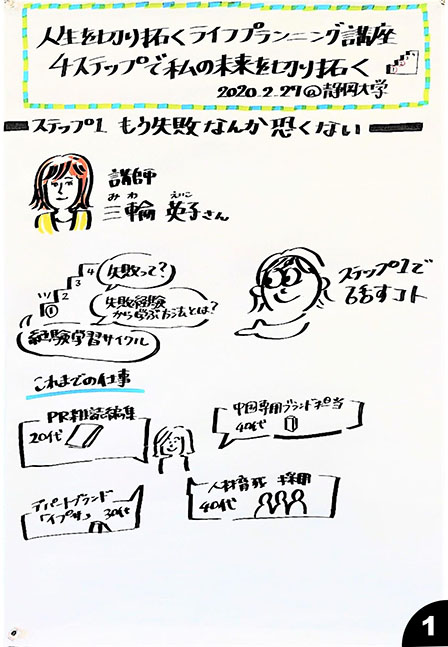 人生を切り拓くライフプランニング講座
4ステップで私の未来を切り拓く
2020.2.27@静岡大学
ステップ1 もう失敗なんか恐くない
講師
みわ えいこ
三輪 英子さん
4 失敗って?
3
2
①
失敗経験
から学ぶ方法とは?
経験学習サイクル
ステップ1で
話すコト
これまでの仕事
PR雑誌編集
20代
中国専用ブランド担当
40代
デパートブランド
「イプサ」 30代
人材育成 採用
40代
1